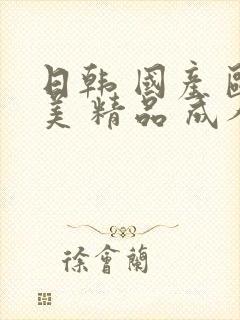 日韩 國產 歐
美 精品 成人
徐會蘭